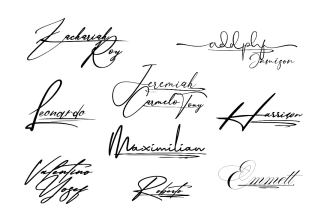 Zachariah
Roy
addply
Jamison
Jeremiah
Carmelo Tony
Leonardo
Harrison
Maximilian
Valentino
Yozaf
Roberto
Emmett